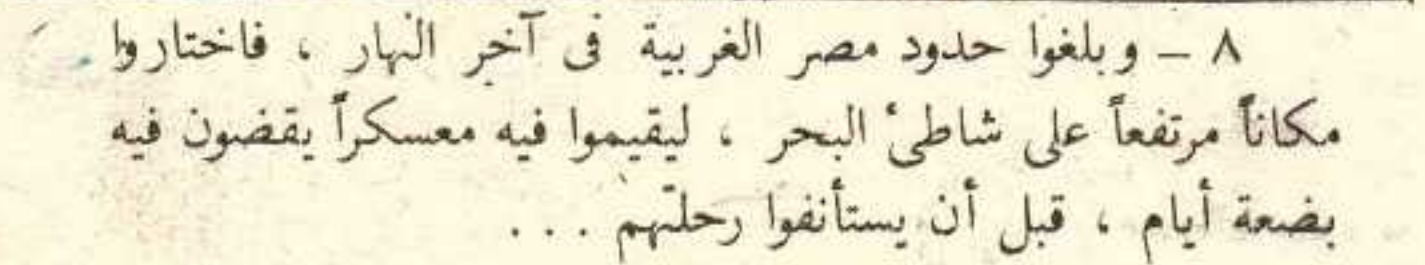 ٨ – وبلغوا حدود مصر الغربية فى آخر النهار ، فاختاروا
مكاناً مرتفعاً على شاطئ البحر ، ليقيموا فيه معسكراً يقضون فيه
بضعة أيام ، قبل أن يستأنفوا رحلتهم . . .